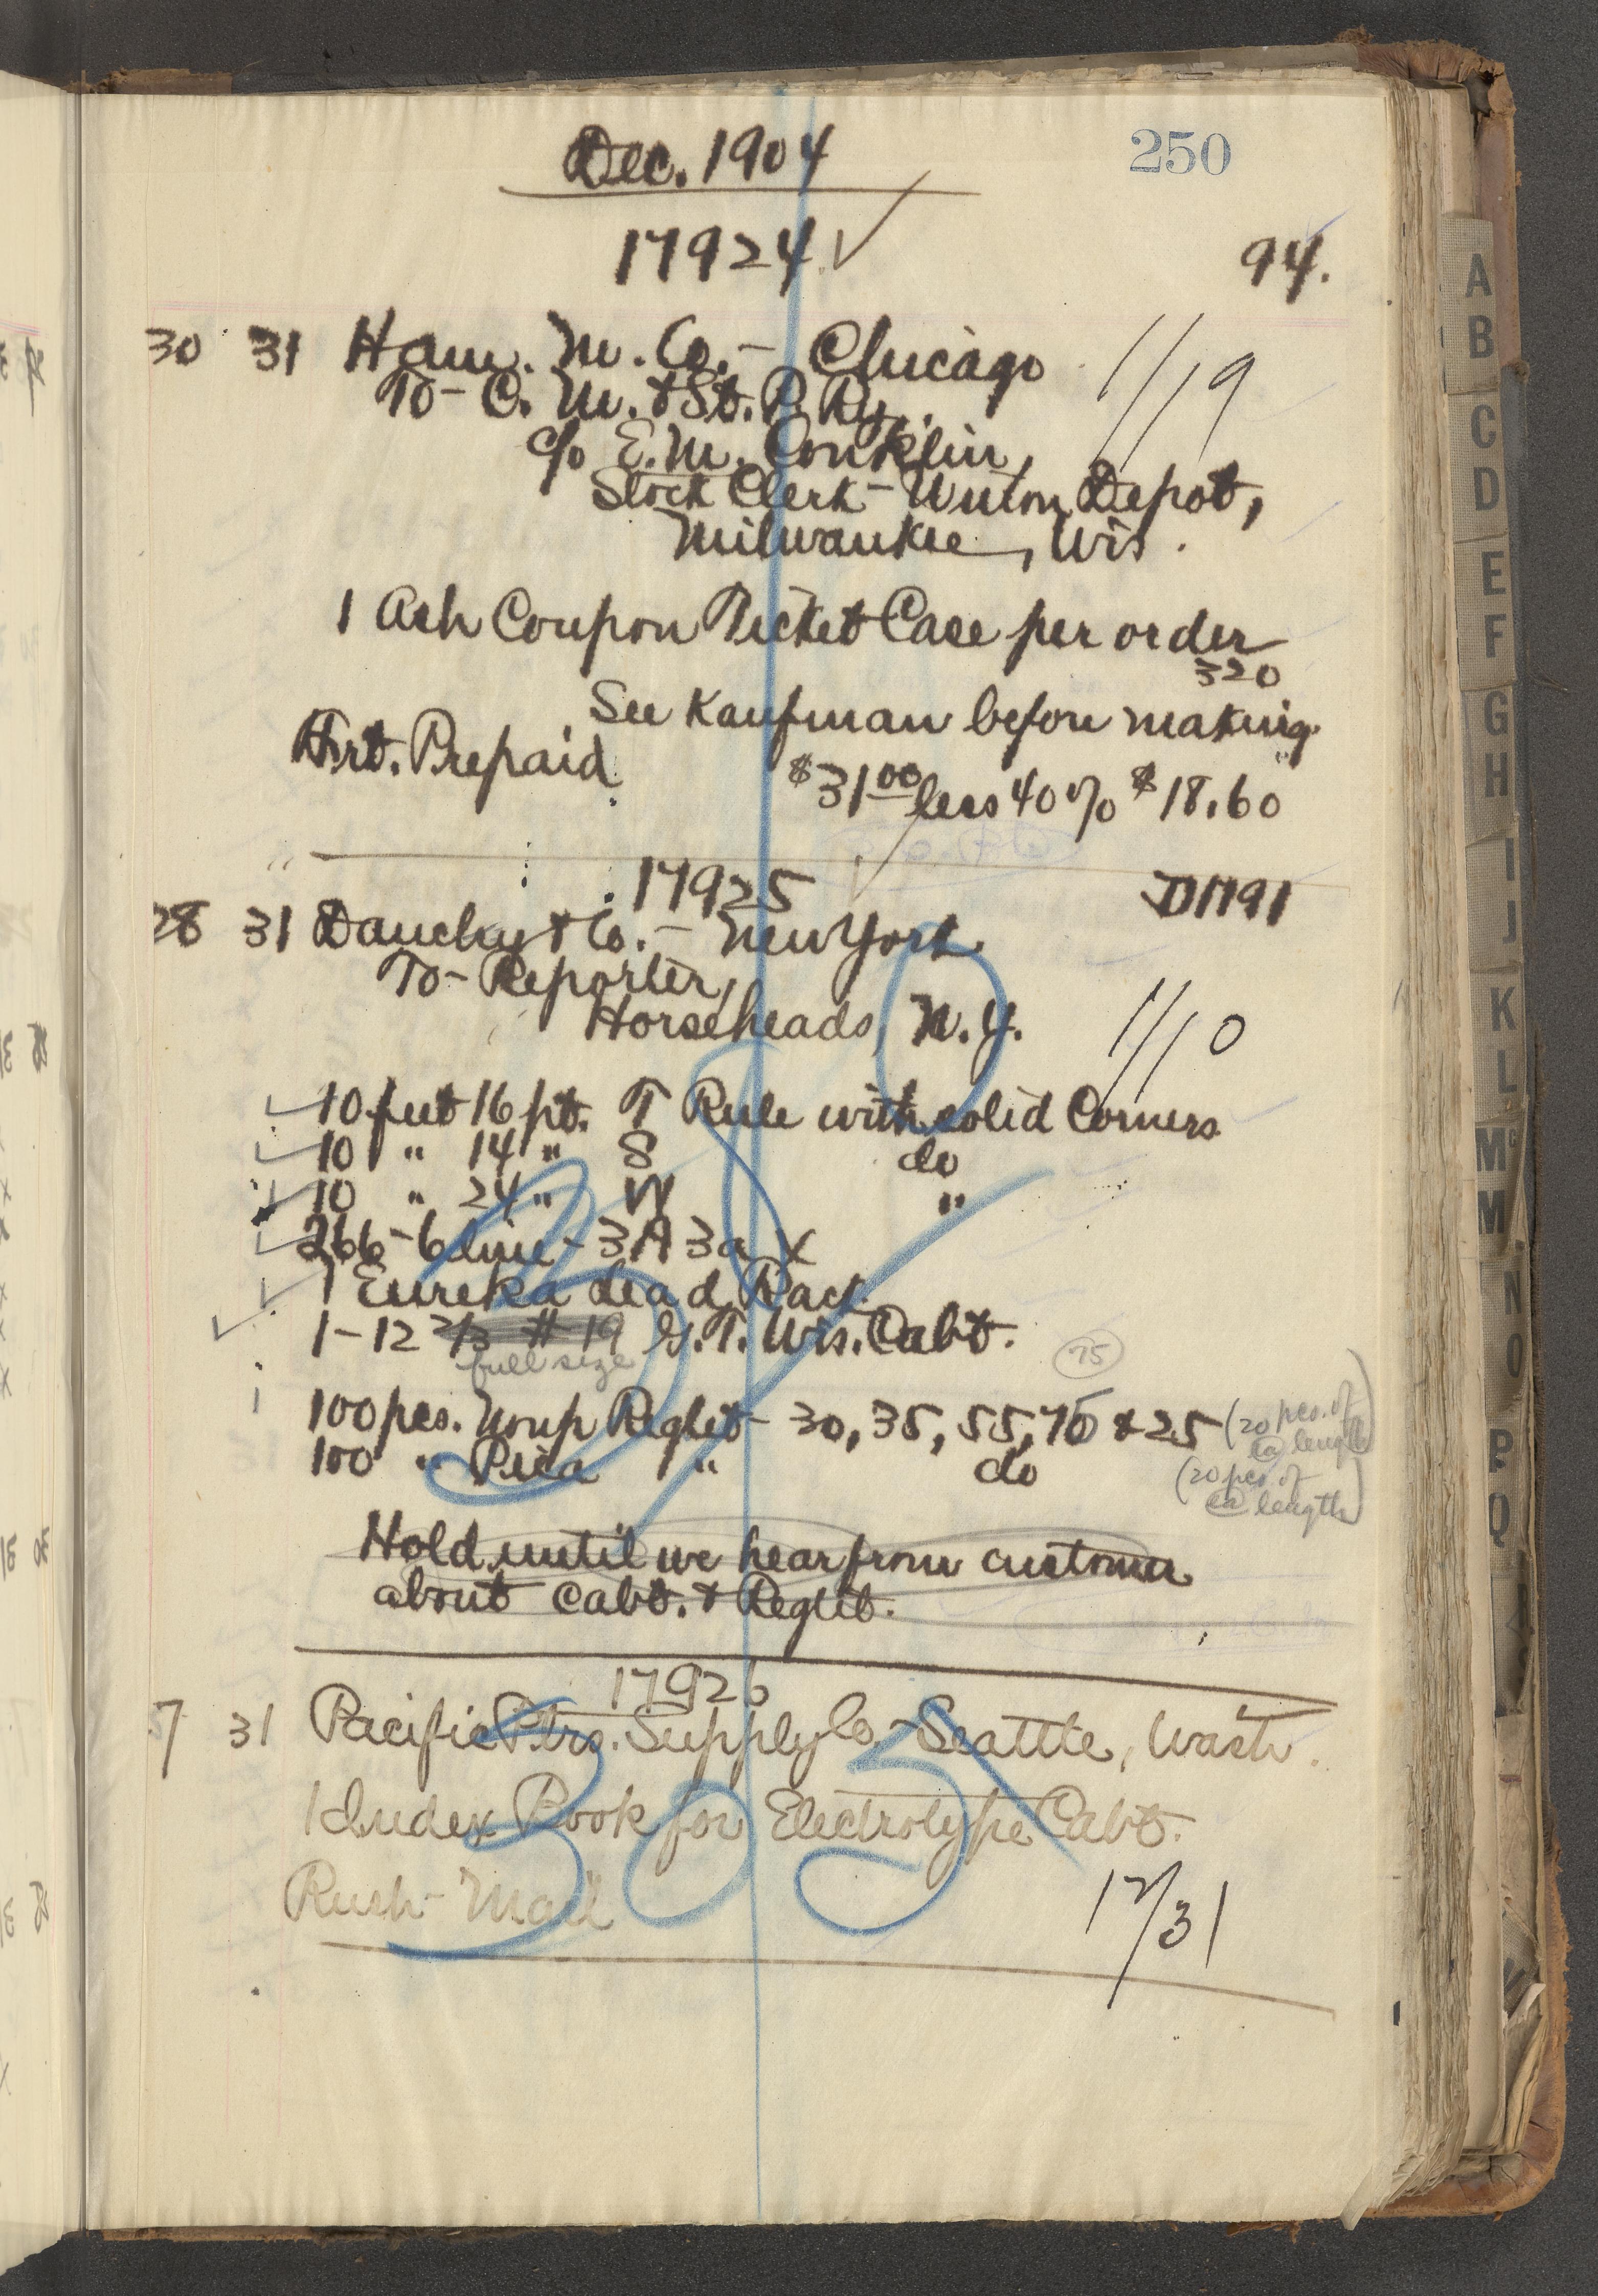 250
Dec. 1904
17924 ✓ 94.
30 31 Ham. M. Co. - Chicago 1/19
To - C. M. & St. P. Ry.
c/o E. M. Conklin,
Stock Clerk - Union Depot,
Milwaukee, Wis.
1 Ash Coupon Ticket Case per order
320
See Kaufman before making.
Frt. Prepaid.
$31.00 less 40% $18.60
17925 ✓ D1191
28 31 Dauchy & Co. - New York.
To - Reporter,
Horseheads, N.Y. 1/10
✓ 10 feet 16 pt. T Rule with solid Corners
✓ 10 " 14 " S do
✓ 10 " 24 " W "
✓ 266 - 6 line - 3A 3a X
✓ 1 Eureka Lead Rack.
✓ 1 - 12 2/3 # 19 G. T. Wis. Cabt.
full size
75
100 pcs. Nonp Reglet - 30, 35, 55, 75 & 25 (20 pcs. of
ea length)
100 " Pica " do (20 pcs. of
ea length)
Hold until we hear from customer
about Cabt. & Reglet.
17926
7 31 Pacific Ptrs. Supply Co. - Seattle, Wash.
1 Index Book for Electrotype Cabt.
Rush - Mail
305
12/31
A
B
C
D
E
F
G
H
I
J
K
L
Mc
M
N
O
P
Q